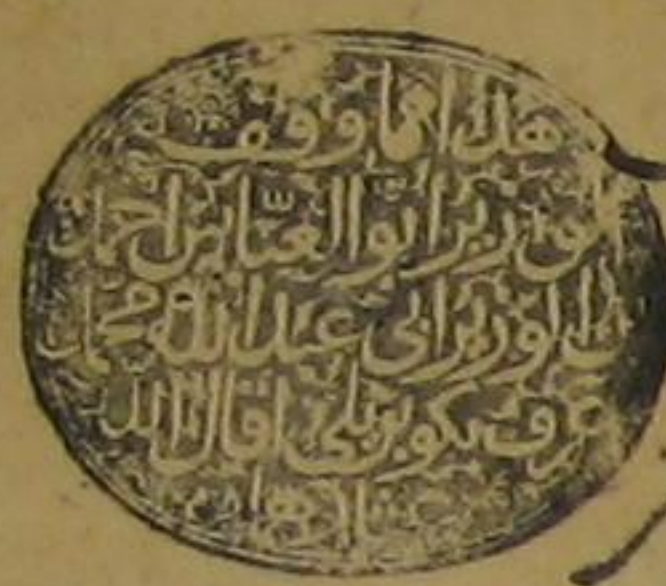 هذا مما وقف
الوزير ابو العبّاس احمد
بن الوزير ابى عبد الله محمد
عرف بكوپريلى اقال الله
عثارهما